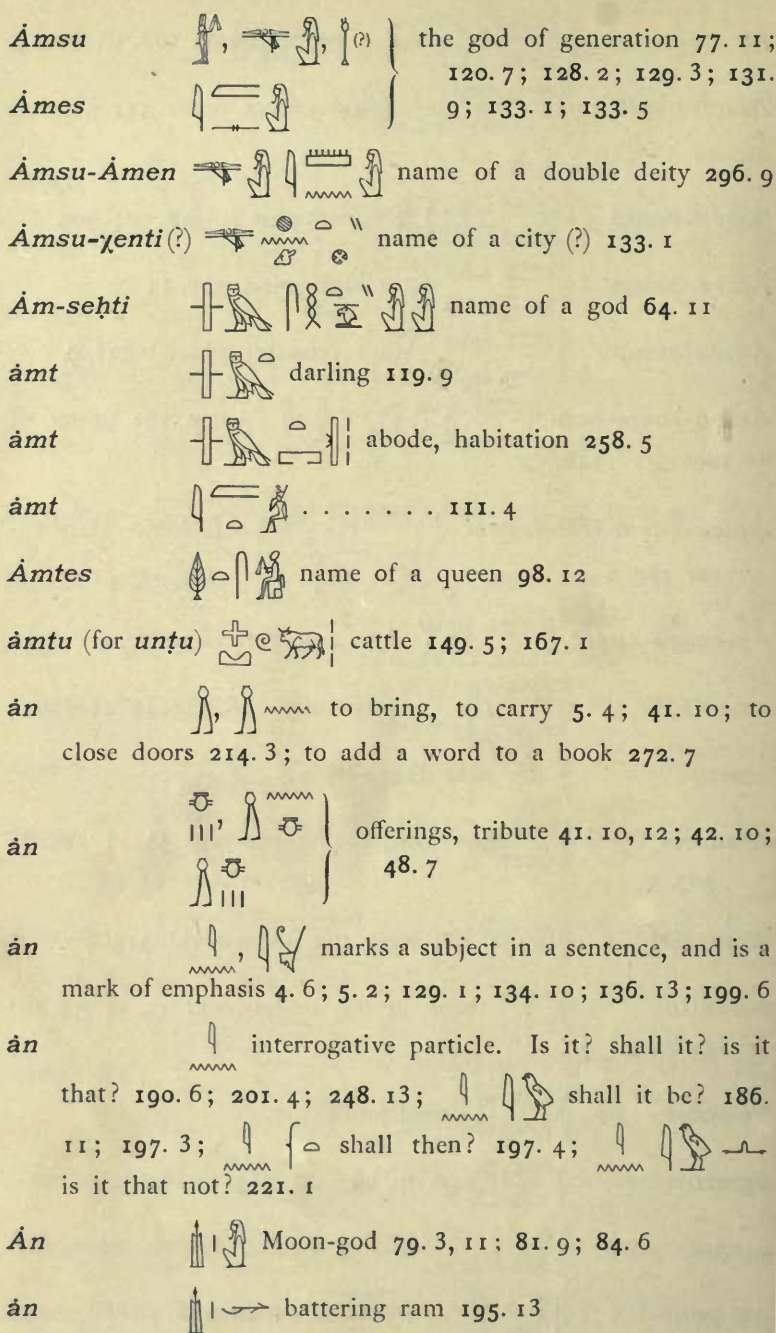 Ȧmsu , , (?) the god of generation 77. 11;
120. 7; 128. 2; 129. 3; 131.
Ȧmes 9; 133. 1; 133. 5
Ȧmsu-Ȧmen name of a double deity 296. 9
Ȧmsu-χenti (?) name of a city (?) 133. 1
Ȧm-seḥti name of a god 64. 11
ȧmt darling 119. 9
ȧmt abode, habitation 258. 5
ȧmt . . . . . . . 111. 4
Ȧmtes name of a queen 98. 12
ȧmtu (for unṭu) cattle 149. 5; 167. 1
ȧn , to bring, to carry 5. 4; 41. 10; to
close doors 214. 3; to add a word to a book 272. 7
ȧn , offerings, tribute 41. 10, 12; 42. 10;
48. 7
ȧn , marks a subject in a sentence, and is a
mark of emphasis 4. 6; 5. 2; 129. 1; 134. 10; 136. 13; 199. 6
ȧn interrogative particle. Is it? shall it? is it
that? 190. 6; 201. 4; 248. 13; shall it be? 186.
11; 197. 3; shall then? 197. 4;
is it that not? 221. 1
Ȧn Moon-god 79. 3, 11; 81. 9; 84. 6
ȧn battering ram 195. 13